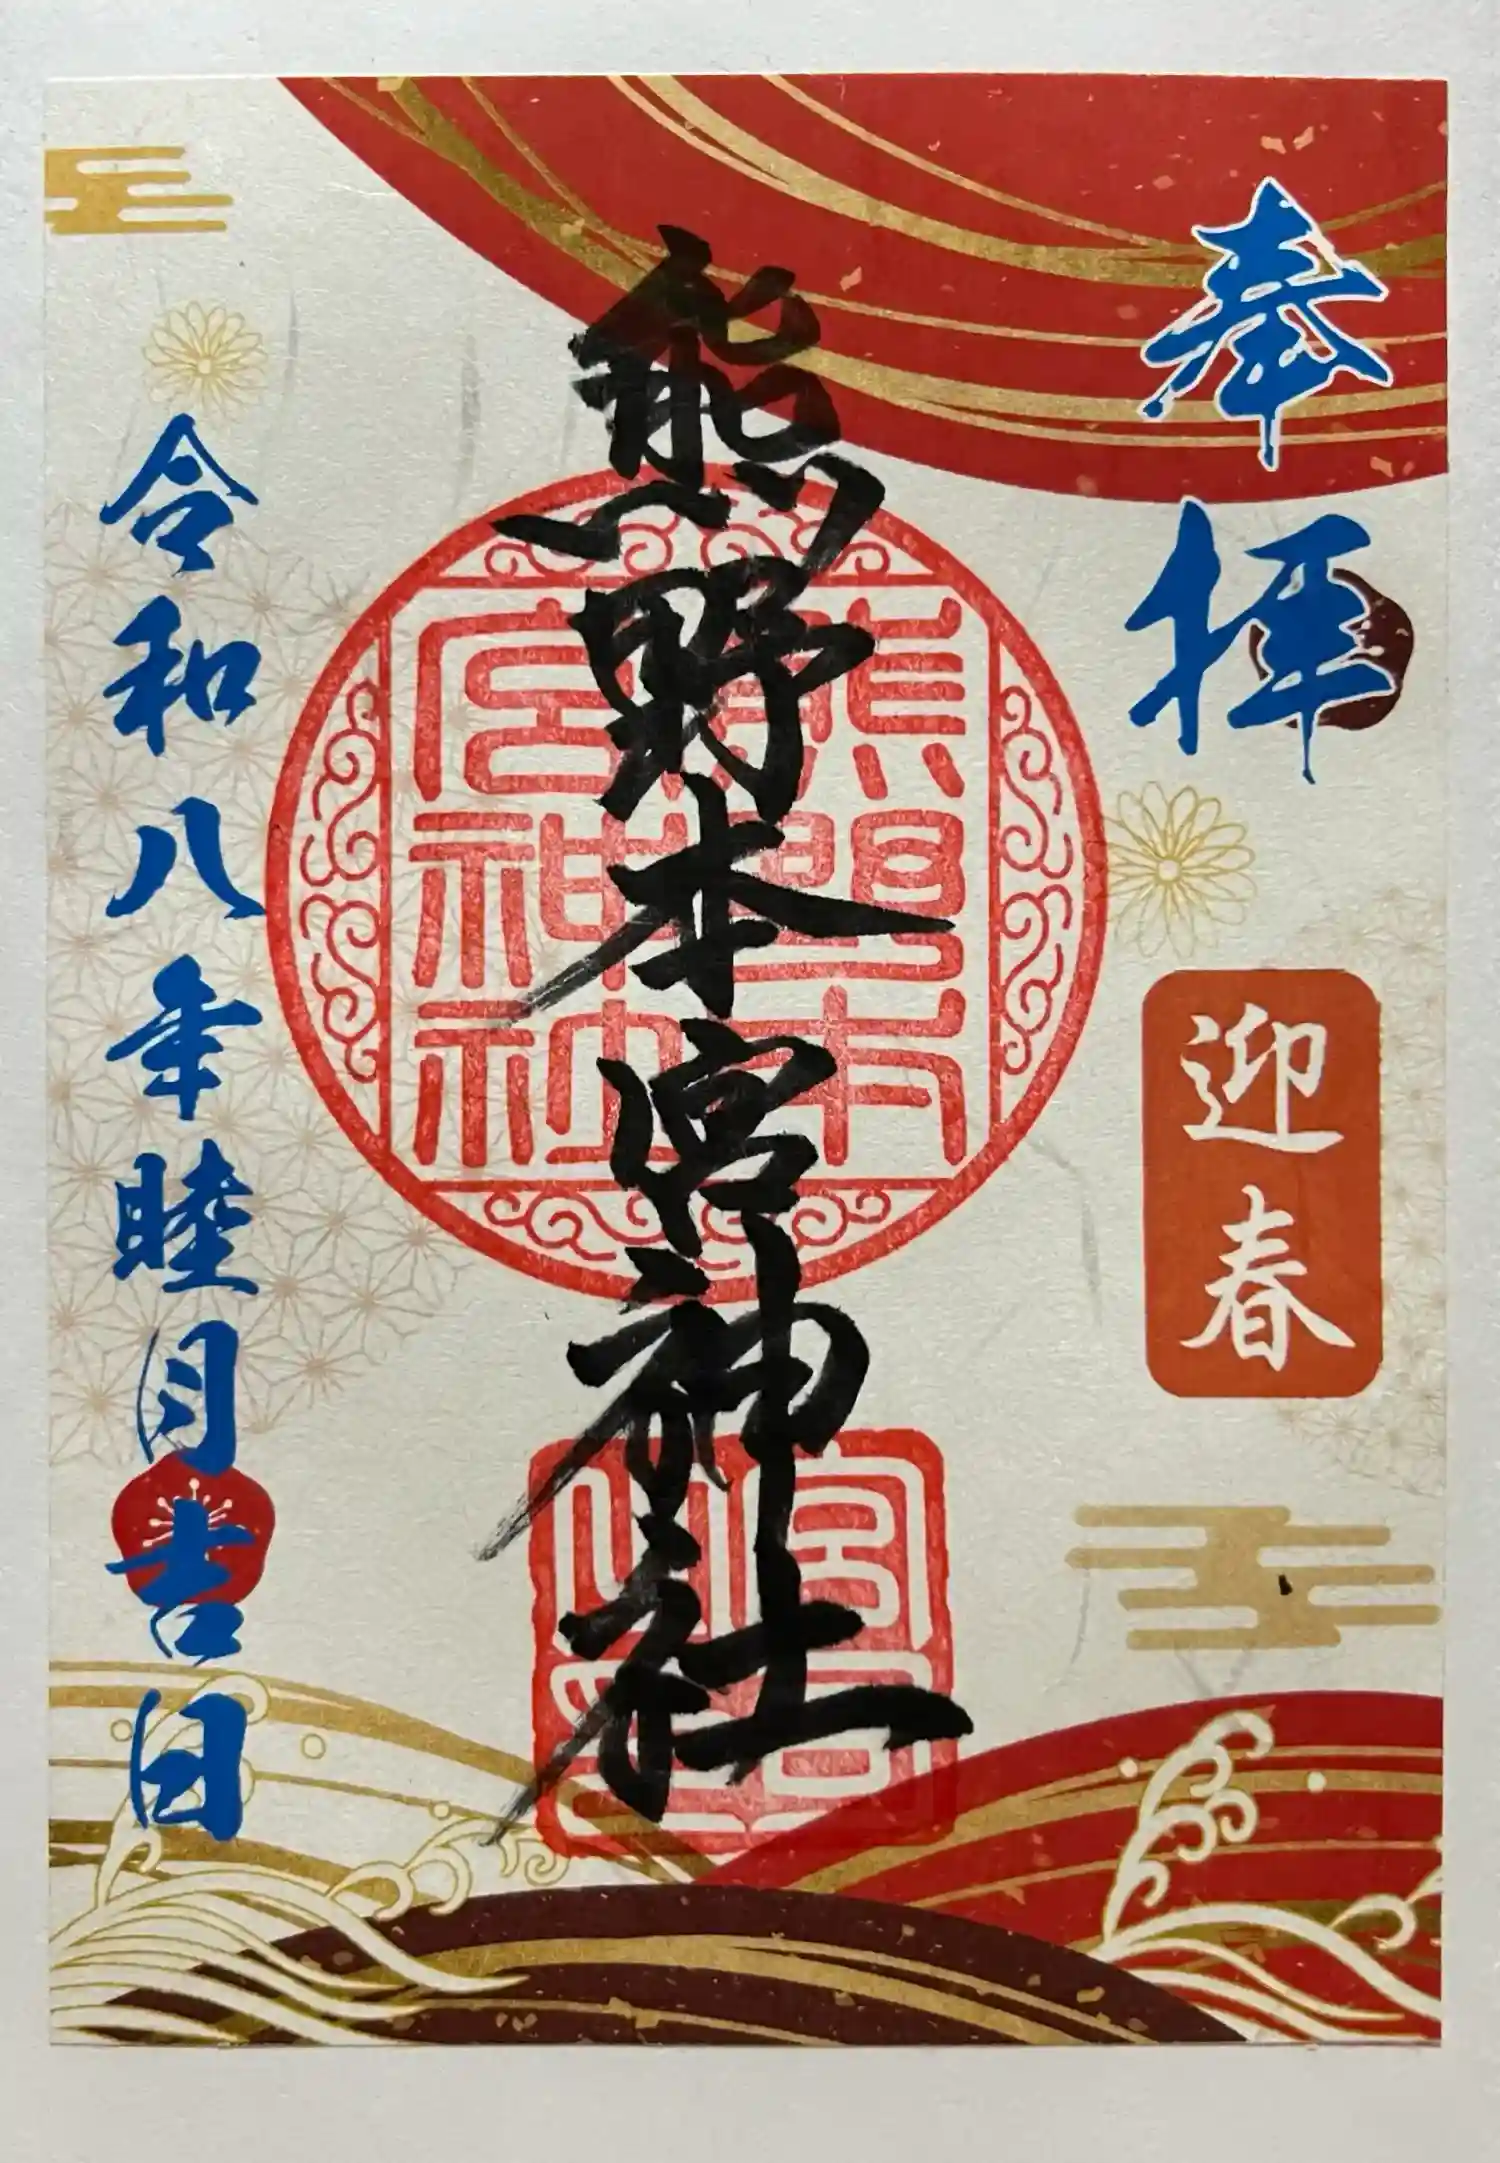 奉拝
迎春
熊野本宮神社
熊野本宮神社
宮司之印
令和八年睦月吉日